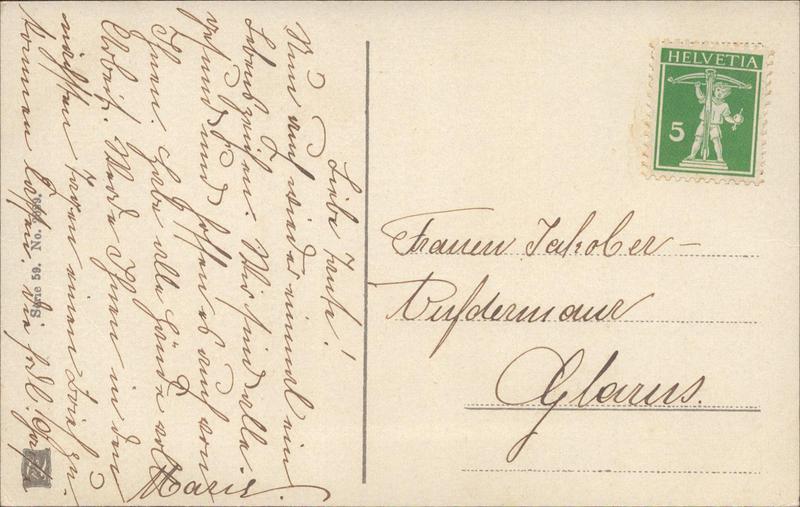 Liebe Tante!
Nun auch wieder einmal ein
Lebenszeichen. Wir sind alle
gesund und hoffen es auch von
Ihnen. Habe alle Hände voll
Arbeit. Werde Ihnen in den
nächsten Tagen einen Brief zu-
kommen lassen. Sie frdl. 
Marie
Serie 59. No.
HELVETIA
5
Frauen Jakober-
Aufdermaur
Glarus.